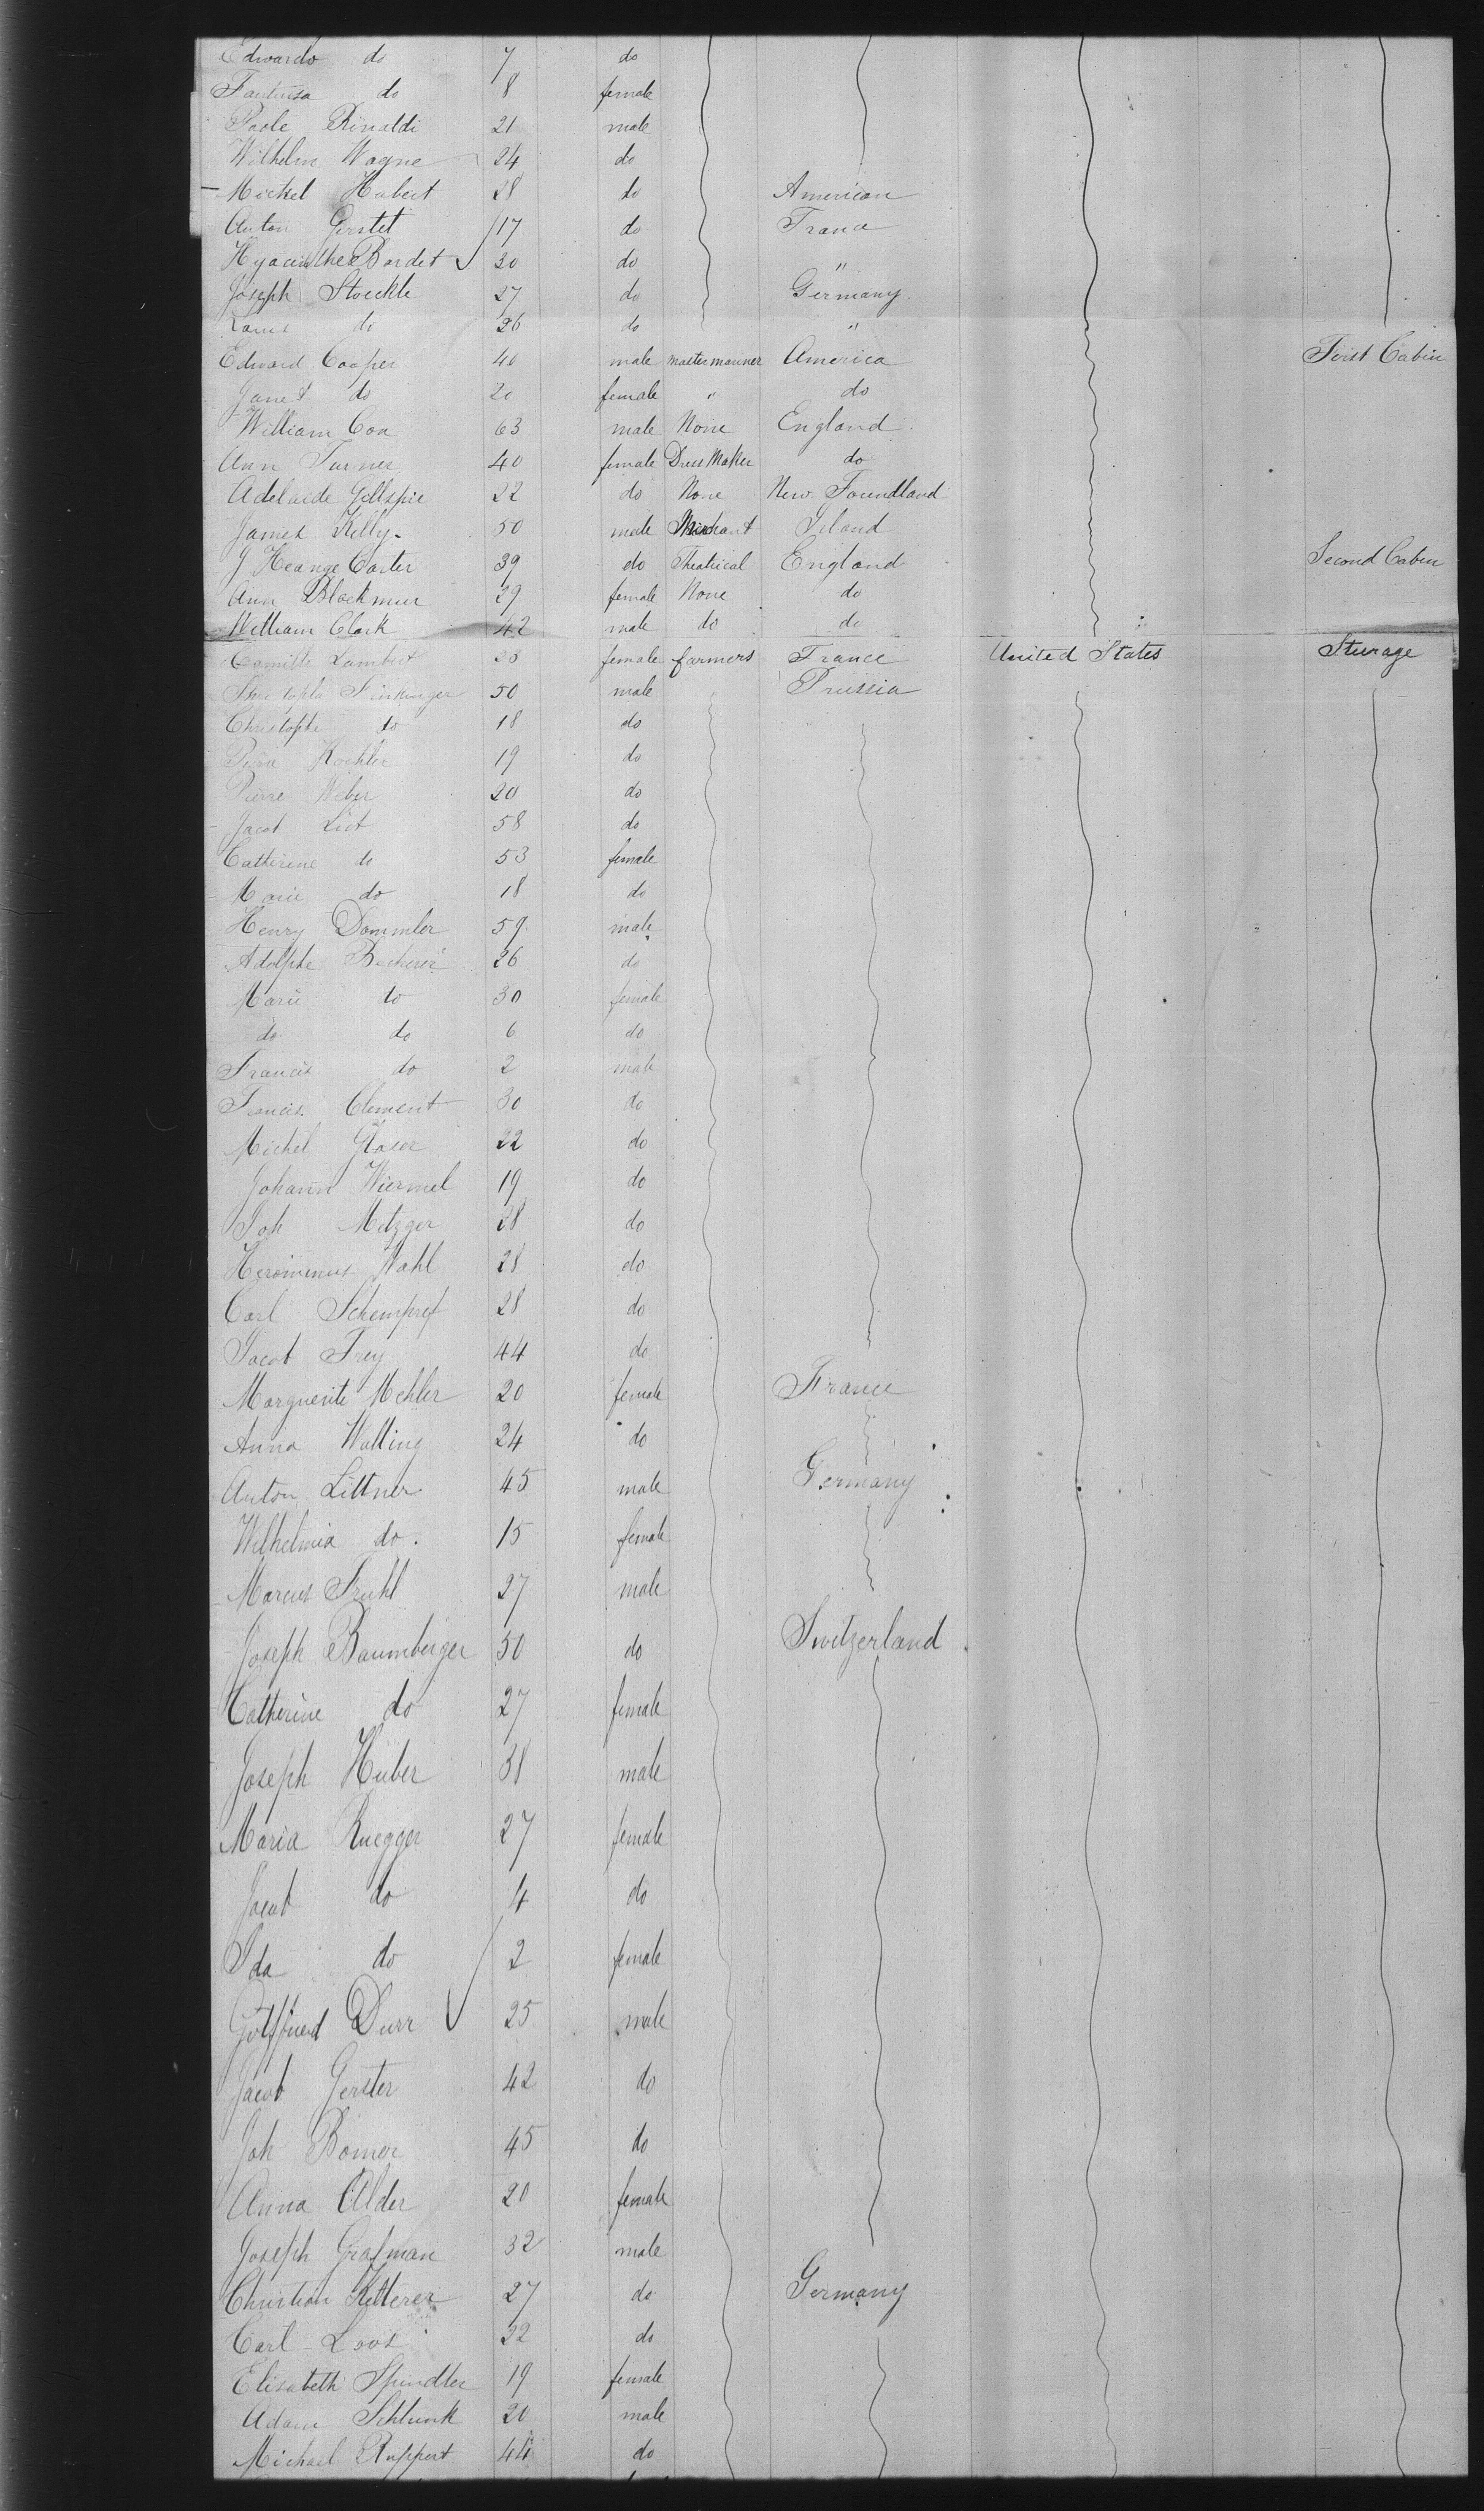 Edwardo do 7 do
do 8 female
Paole Rinaldi 21 male
Wilhelm Wagne 24 do
Mickel Hubert 28 do American
Anton Gerstet 17 do France
Hyacinthe Bardet 30 do "
Joseph Stoeckle 27 do Germany
Louis do 26 do "
Edward Cooper 40 male master mariner America First Cabin
Janet do 20 female " do
William Cox 63 male None England
Ann Turner 40 female Dress Maker do
Adelaide Gillspie 22 do None New Foundland
James Kelly 50 male Island
J Heange Carter 39 do Theatrical England Second Cabin
Ann Blackmur 29 female None do
William Clark 42 male do do
Camille Lambert 28 female farmers France United States Sturage
50 male Prussia
Christophe do 18 do
Koehler 19 do
Pierre Weber 20 do
Jacob List 58 do
Catherine do 53 female
Marie do 18 do
Henry Dommler 59 male
Adolphe Beckerer 26 do
Marie do 30 female
do do 6 do
Francis do 2 male
Francis Clement 30 do
Michel Glaser 22 do
Johann Wiermel 19 do
Joh Metzger 28 do
Heronimus Wahl 28 do
Carl Schempref 28 do
Jacob Frey 44 do
Marguerite Mehler 20 female France
Anna Walling 24 do
Anton Littner 45 male Germany
Wilhelmia do. 15 female
Marcus Fruhl 27 male
Joseph Baumberger 50 do Switzerland
Catherine do 27 female
Joseph Huber 38 male
Maria Ruegger 27 female
Jacob do 4 do
Ida do 2 female
Gottfried Durr 25 male
Jacob Gerster 42 do
Joh Bomer 45 do
Anna Alder 20 female
Joseph Grafman 32 male
Christian Ketterer 27 do Germany
Carl Loos 32 do
Elisabeth Spindler 19 female
Adam Schlunk 20 male
Michael Ruppert 44 do